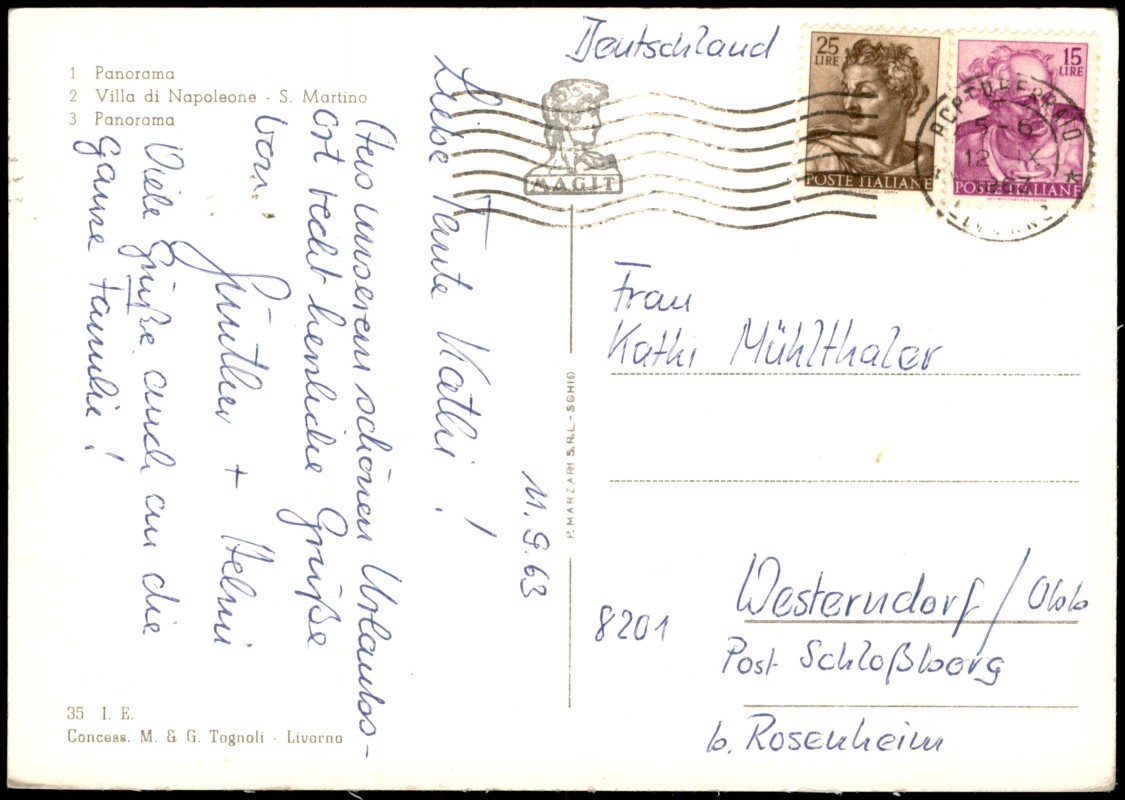 1 Panorama
2 Villa di Napoleone - S. Martino
3 Panorama
11.9.63
Liebe Tante Kathi!
Aus unserem schönen Urlaubs-
ort recht herzliche Grüße
von
Günther + Helmi
Viele Grüße auch an die
ganze Familie!
35 I. E.
Concess. M. & G. Tognoli - Livorno
P. MARZARI S.R.L. - SCHIO
Deutschland
MAGIT
25
LIRE
POSTE ITALIANE
15
LIRE
POSTE ITALIANE
5-6
12 IX
Frau
Kathi Mühlthaler
8201
Westerndorf/Obb
Post Schloßberg
b. Rosenheim